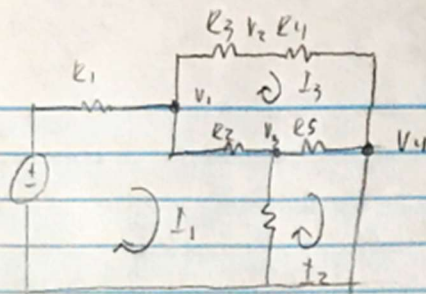 R3 V2 R4
R1
I3
V1
R2 V3 R5
V4
±
I1
I2